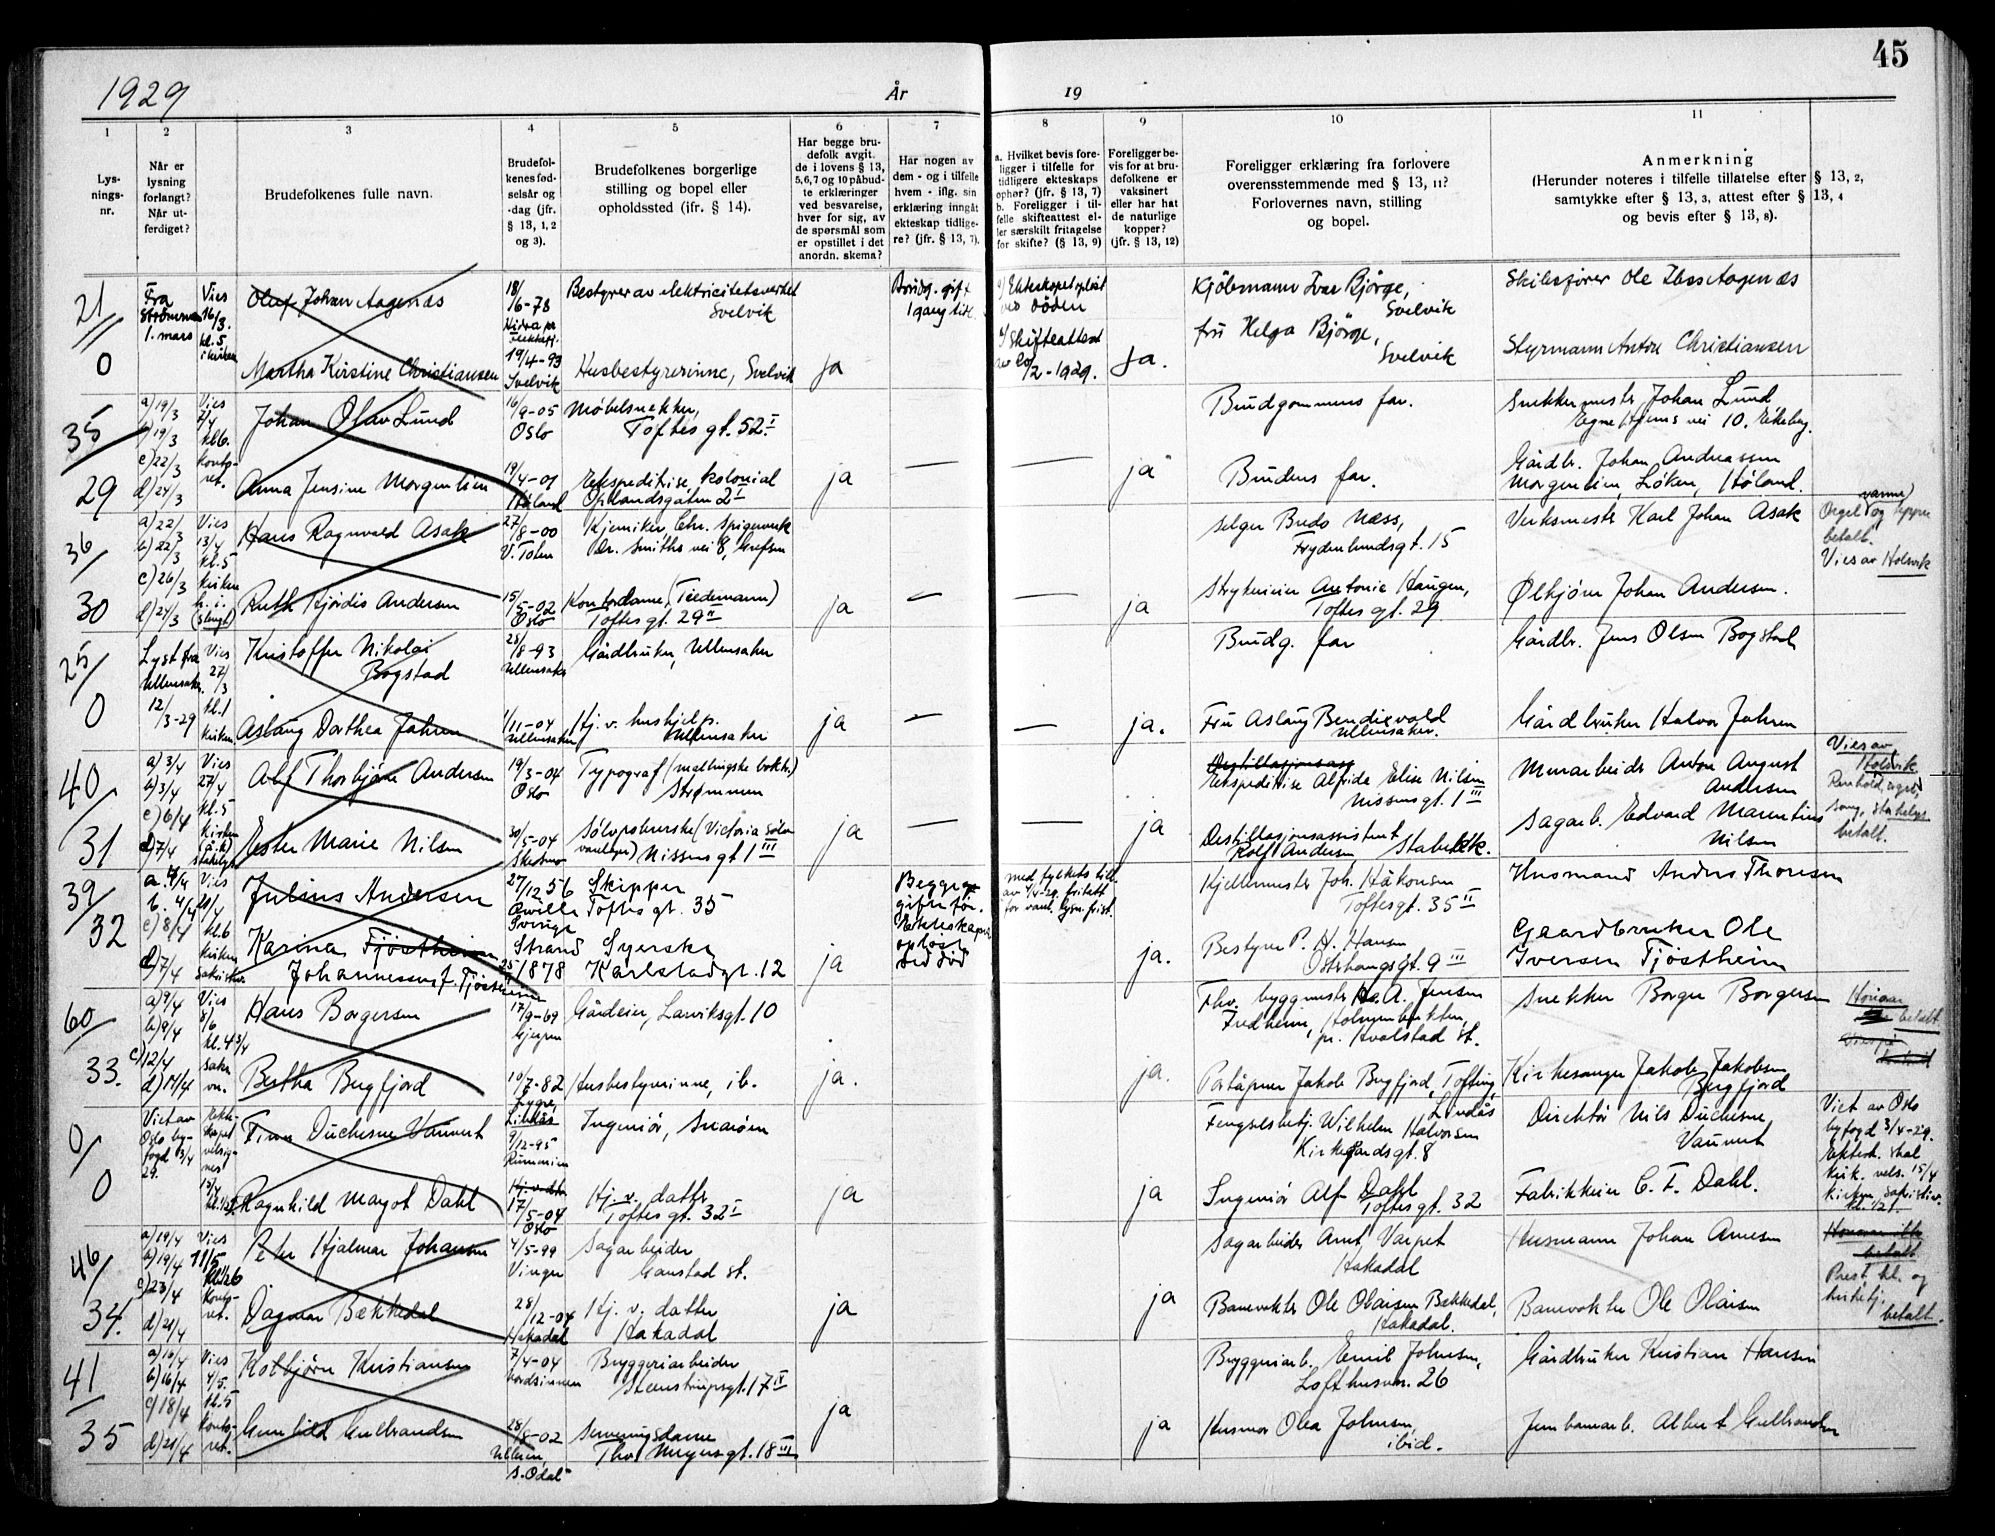 45
1929
År
19
1
2
3
4
5
6
7
8
9
10
11
Lys-
nings-
nr.
Når er
lysning
forlangt?
Når ut-
ferdiget?
Brudefolkenes fulle navn.
Brudefol-
kenes fød-
selsår og
-dag (jfr.
§ 13, 1, 2
og 3).
Brudefolkenes borgerlige
stilling og bopel eller
opholdssted (ifr. § 14).
Har begge bru-
defolk avgit.
de i lovens § 13,
5,6,7 og 10 påbud-
te erklæringer
ved besvarelse,
hver for sig, av
de spørsmål som
er opstillet i det
anordn. skema?
Har nogen av
dem - og i tilfelle
hvem - iflg. sin
erklæring inngåt
ekteskap tidlige-
re? (jfr. § 13, 7).
a. Hvilket bevis fore-
ligger i tilfelle for
tidligere ekteskaps
ophør? (jfr. § 13, 7)
b. Foreligger i til-
felle skifteattest el-
ler særskilt fritagelse
for skifte? (§ 13, 9)
Foreligger be-
vis for at bru-
defolkene er
vaksinert
eller har hat
de naturlige
kopper?
(jfr. § 13, 12)
Foreligger erklæring fra forlovere
overensstemmende med § 13, 11?
Forlovernes navn, stilling
og bopel.
Anmerkning
(Herunder noteres i tilfelle tillatelse efter § 13, 2,
samtykke efter § 13, 3, attest efter § 13, 4
og bevis efter § 13, 8).
21
0
Fra
Strømmen
1. mars
Vies
16/3.
kl. 5
i kirken
Olaf Johan Aagenæs
18/6-78
Bestyrer av elektricitetsverket
Svelvik
Brudg. gift
1 gang tidl.
a) Ekteskapet opløst
ved døden
b) Skifteattest
2-1929.
Kjøbmann Ivar Bjørge,
Svelvik
Fru Helga Bjørge,
Svelvik
Skibsfører Ole Aagenæs
Martha Kirstine Christiansen
19/4-93
Svelvik
Husbestyrerinne, Svelvik
Ja
Ja.
Styrmann Anton Christiansen
35
29
a) 19/3
b) 19/3
c) 22/3
d) 24/3
Vies
kl 6.
kontp-
ret.
Johan Olav Lund
16/9-05
Oslo
Møbelsnekker,
Toftes gt. 52 I
Brudgommens far.
Snekkermester Johan Lund
Egne Hjems vei 10. Ekeberg.
Anna Jensine Morgenlien
19/4-01
Høland
Ekspeditrise, kolonial
Oplandsgaten 2 I
ja
—
—
ja
Brudens far.
Gårdbr. Johan Andreassen
Morgenlien, Løken, Høland.
36
30
a) 22/3
b) 22/3
c) 26/3
d) 24/3
Vies
13/4
kl. 5
kirken
Hans Ragnvald Asak
27/8-00
V. Toten
Kjemiker, Chr. Spigerverk
Dr. Smiths vei 8, Grefsen
Selger Bredo Næss,
Frydenlundsgt. 15
Verksmester Karl Johan Asak
betalt.
Vies av Holsvik
Ruth Hjørdis Andersen
15/5-02
Oslo
Kontordame, (Tiedemann)
Toftes gt. 29 II
ja
—
—
ja
Antonie Haugen,
Toftes gt. 29
Ølkjører Johan Andersen.
25
0
Lyst fra
Ullensaker.
12/3-29
Vies
27/3
kl. 1
kirken
Kristoffer Nikolai
Bogstad
25/8-93
Ullensaker
Gårdbruker, Ullensaker
Brudg. far
Gårdbr. Jens Olsen Bogstad
Aslaug Dorthea Jahren
1/11-04
Ullensaker
Hj. v. hushjelp.
Ullensaker
ja
—
—
ja.
Fru Aslaug Bendixvold
Ullensaker.
Gårdbruker Halvor Jahren
40
31
a) 3/4
b) 3/4
c) 6/4
d) 7/4
Vies
27/4
kl. 5
kirken
Alf Thorbjørn Andersen
19/3-04
Oslo
Typograf (Mallingske boktr.)
Strømmen
Ekspeditrise Alfrida Elise Nilsen
Nissens gt. 1 III
Murarbeider Anton August
Andersen
Vies av
Holsvik
betalt.
Ester Marie Nilsen
30/5-04
Sølvpolererske (Victoria sølv-
varefabr.) Nissens gt 1 III
ja
—
—
ja
Destillasjonsassistent
Rolf Andersen Stabekk.
Sagarb. Edvard Marentius
Nilsen
39
32
a. 4/4
b. 4/4
c) 8/4
d) 7/4
Vies
kl. 6
kirken
Julius Andersen
27/12 56
Skipper
Toftes gt. 35
Begge
gift før.
Ekteskapene
opløst
ved død
Kjellermester Joh. Håkonsen
Toftesgt. 35 II
Husmand Anders Thoresen
Karina Tjøstheim
Johannessen f. Tjøstheim
Strand
25/ 1878
Syerske
Karlstadgt. 12
ja
ja.
Bestyrer P. H. Hansen
Østerhausgt. 9 III
Gaardbruker Ole
Iversen Tjøstheim
60
33.
a) 9/4
b) 9/4
c) 12/4
d) 14/4
Vies
8/6
kl. 4 3/4
Hans Borgersen
17/9-69
Gjerpen
Gårdeier, Larviksgt. 10
Fhv. byggmester A. Jensen
Fredheim, Holmenbukten,
pr. Hvalstad st.
Snekker Borger Borgersen
betalt.
Bertha Bugfjord
10/7-82
Husbestyrerinne, ib.
ja.
ja.
Jakob Bugfjord, Tofting,
Lindås
Kirkesanger Jakob Jakobsen
Bugfjord
0
0
Viet av
Oslo by-
fogd 3/4
29.
Finn Duchesne Vauvert
9/12-95
Ingeniør, Snarøen
Fengselsbetj. Wilhelm Halvorsen
Kirkegårdsgt. 8
Direktør Nils Duchesne
Vauvert
Viet av Oslo
byfogd 3/4-29.
Ektesk. skal
kirk. vels. 15/4
Ragnhild Margot Dahl
17/5-04
Oslo
Hj. v. datter
Toftes gt. 32 I
ja
ja
Ingeniør Alf Dahl
Toftes gt. 32
Fabrikkeier C. F. Dahl.
46
34.
a) 19/4
b) 19/4
c) 23/4
d) 21/4
Vies
11/5
kontp-
ret.
Peter Hjalmar Johansen
4/5-99
Vinger
Sagarbeider
Ganstad st.
Sagarbeider Arnt Varpet
Hakadal
Husmann Johan Arnesen
Prest, kl. og
kirketj.
betalt.
Dagmar Bækkedal
28/12-04
Hakadal
Hj. v. datter
Hakadal
ja
ja
Banevokter Ole Olaisen Bækkedal,
Hakadal.
Banevokter Ole Olaisen
41
35
a) 16/4
b) 16/4
c) 18/4
d) 21/4
Vies
4/5.
kl. 5
kontp-
ret.
Kolbjørn Kristiansen
7/4-04
Nordsinnen
Bryggeriarbeider
Steenstrupsgt. 17 IV
Bryggeriarb. Emil Johnsen,
Lofthusvn. 26
Gårdbruker Kristian Hansen
Gunhild Gulbrandsen
28/8-02
Ullern,
S. Odal
Serveringsdame
Thv. Meyersgt. 18 III
ja
ja
Husmor Olea Johnsen
ibid.
Jernbanearb. Albert Gulbrandsen